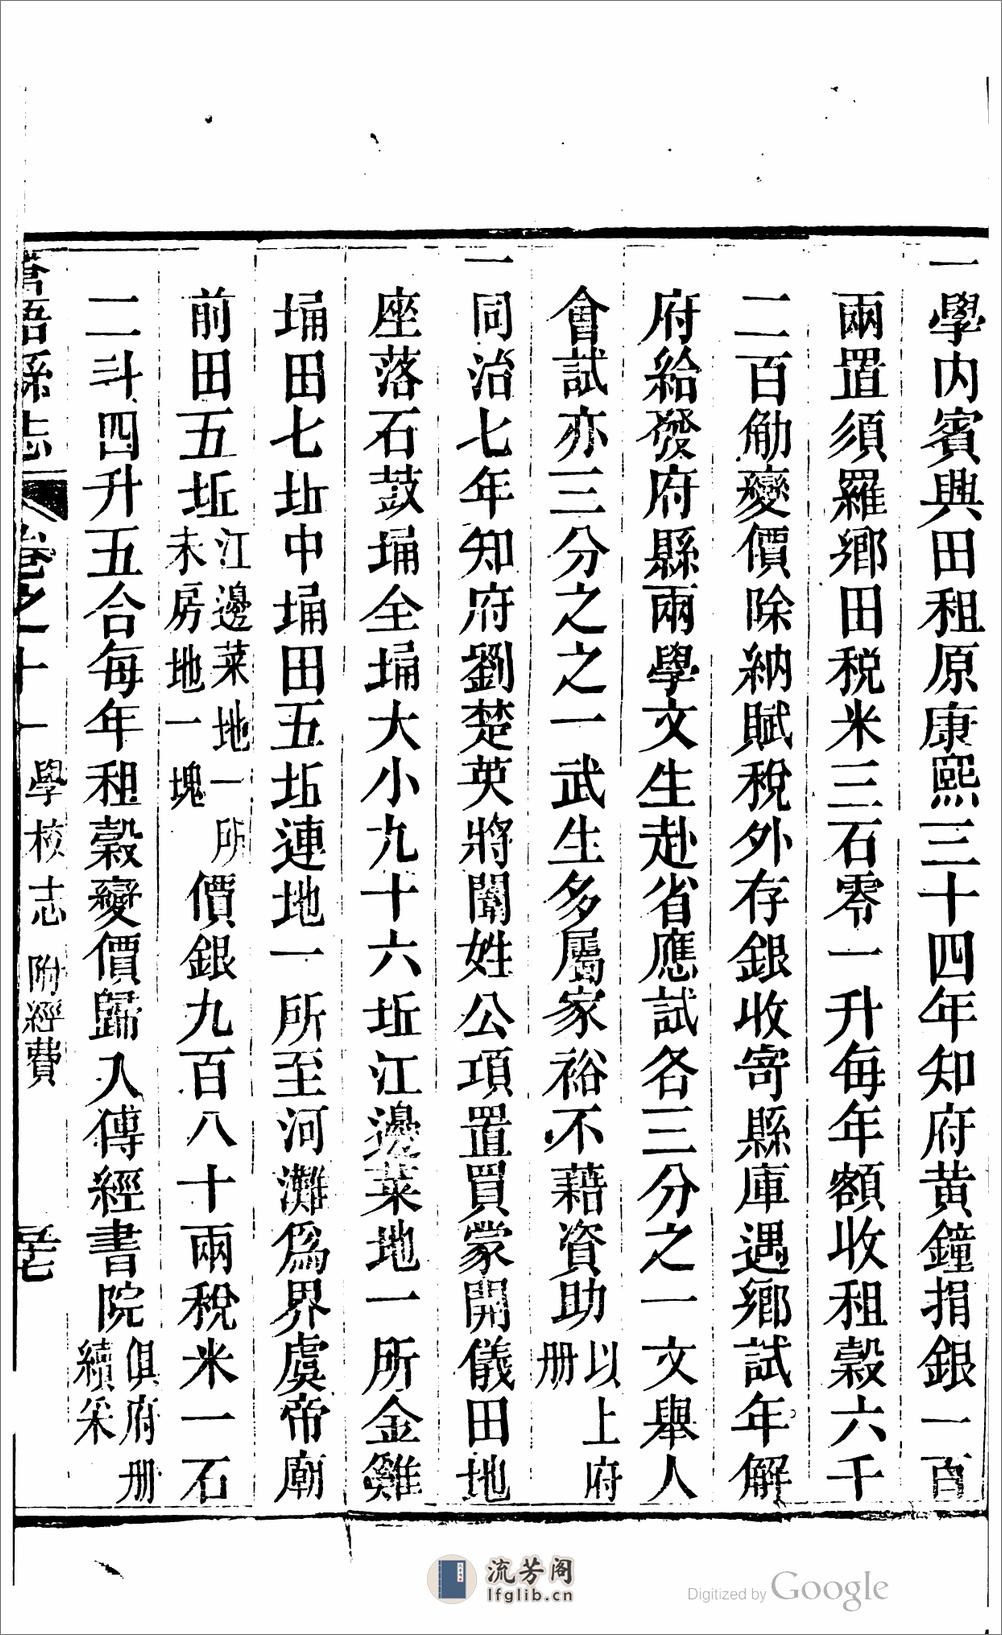 一學内賓興田租原康熙三十四年知府黄鐘捐銀一百
兩置須羅鄉田税米三石零一升每年額收租穀六千
二百觔變價除納賦税外存銀收寄縣庫遇鄉試年解
府給發府縣兩學文生赴省應試各三分之一文舉人
會試亦三分之之一武生多屬家裕不藉資助以上府
册
一同治七年知府劉楚英將闔姓公項置買蒙開儀田地
座落石鼓埇全埇大小九十六坵江邊菜地一所金雞
埇田七坵中埇田五坵連地一所至河灘爲界虞帝廟
前田五坵江邊菜地一所
未房地一塊
價銀九百八十兩税米一石
二斗四升五合每年租穀變價歸入傳經書院俱府册
續采
蒼梧縣志 卷之十一 學校志 附經費
流芳阁
lfglib.cn
Digitized by Google